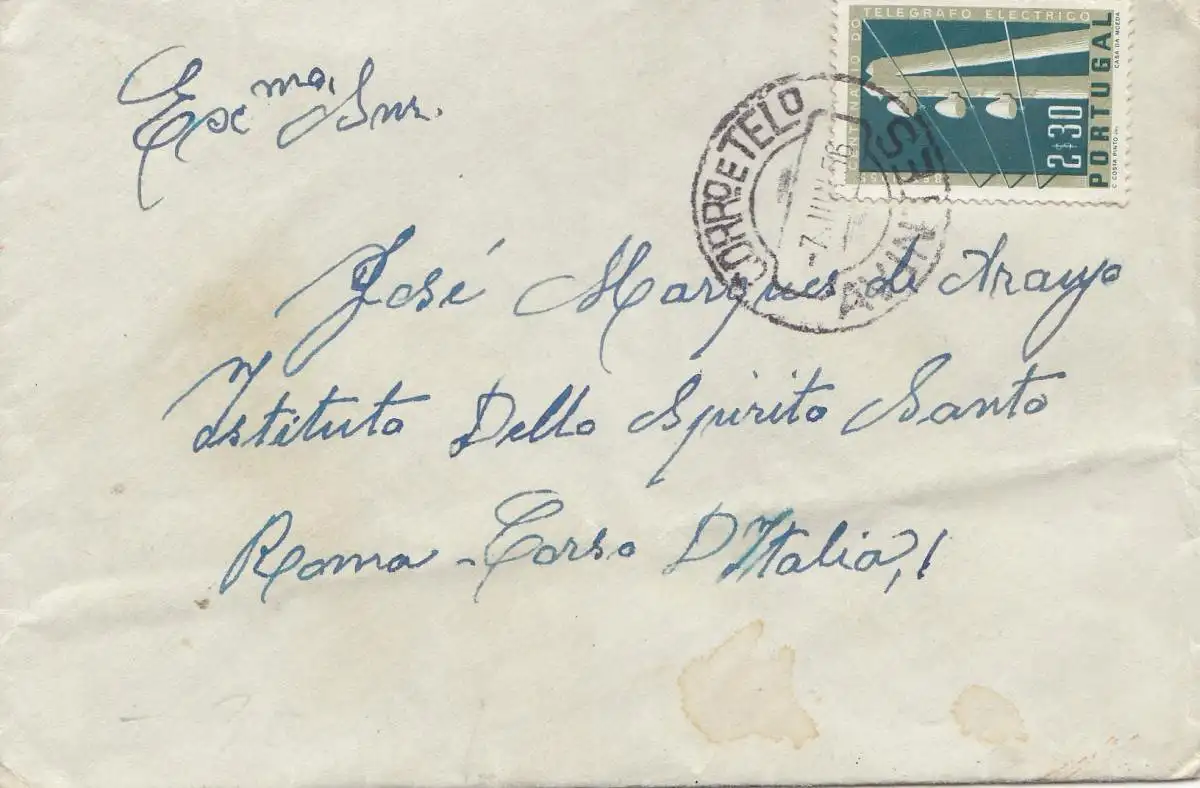 Exma, Snr.
José Marques de Araujo
Istituto Dello Spirito Santo
Roma - Corso D'Italia, 1
CENTENARIO DO TELEGRAFO ELECTRICO
2$30
PORTUGAL
C. COSTA PINTO DEL.
CASA DA MOEDA
CORRO E TELO
-7.JUN.56